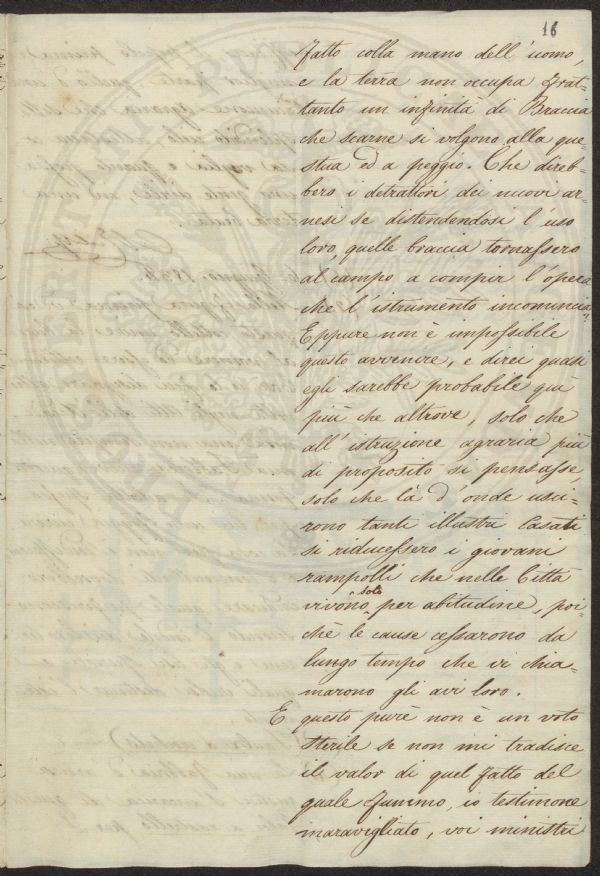 16
fatto colla mano dell'uomo,
e la terra non occupa frat-
tanto un infinità di Braccia
che scarne si volgono alla que-
stua ed a peggio. Che direb-
bero i detrattori dei nuovi ar-
nesi se distendendosi l'uso
loro, quelle braccia tornassero
al campo a compir l'opera
che l'istrumento incomincia.
Eppure non è impossibile
questo avvenire, e direi quasi
egli sarebbe probabile quì
più che altrove, solo che
all'istruzione agraria più
di proposito si pensasse,
solo che là d'onde usci-
rono tanti illustri Casati
si riducessero i giovani
rampolli che nelle Città
vivono solo per abitudine, poi-
chè le cause cessarono da
lungo tempo che vi chia-
marono gli avi loro.
E questo pure non è un voto
sterile se non mi tradisce
il valor di quel fatto del
quale fummo, io testimone
maravigliato, voi ministri